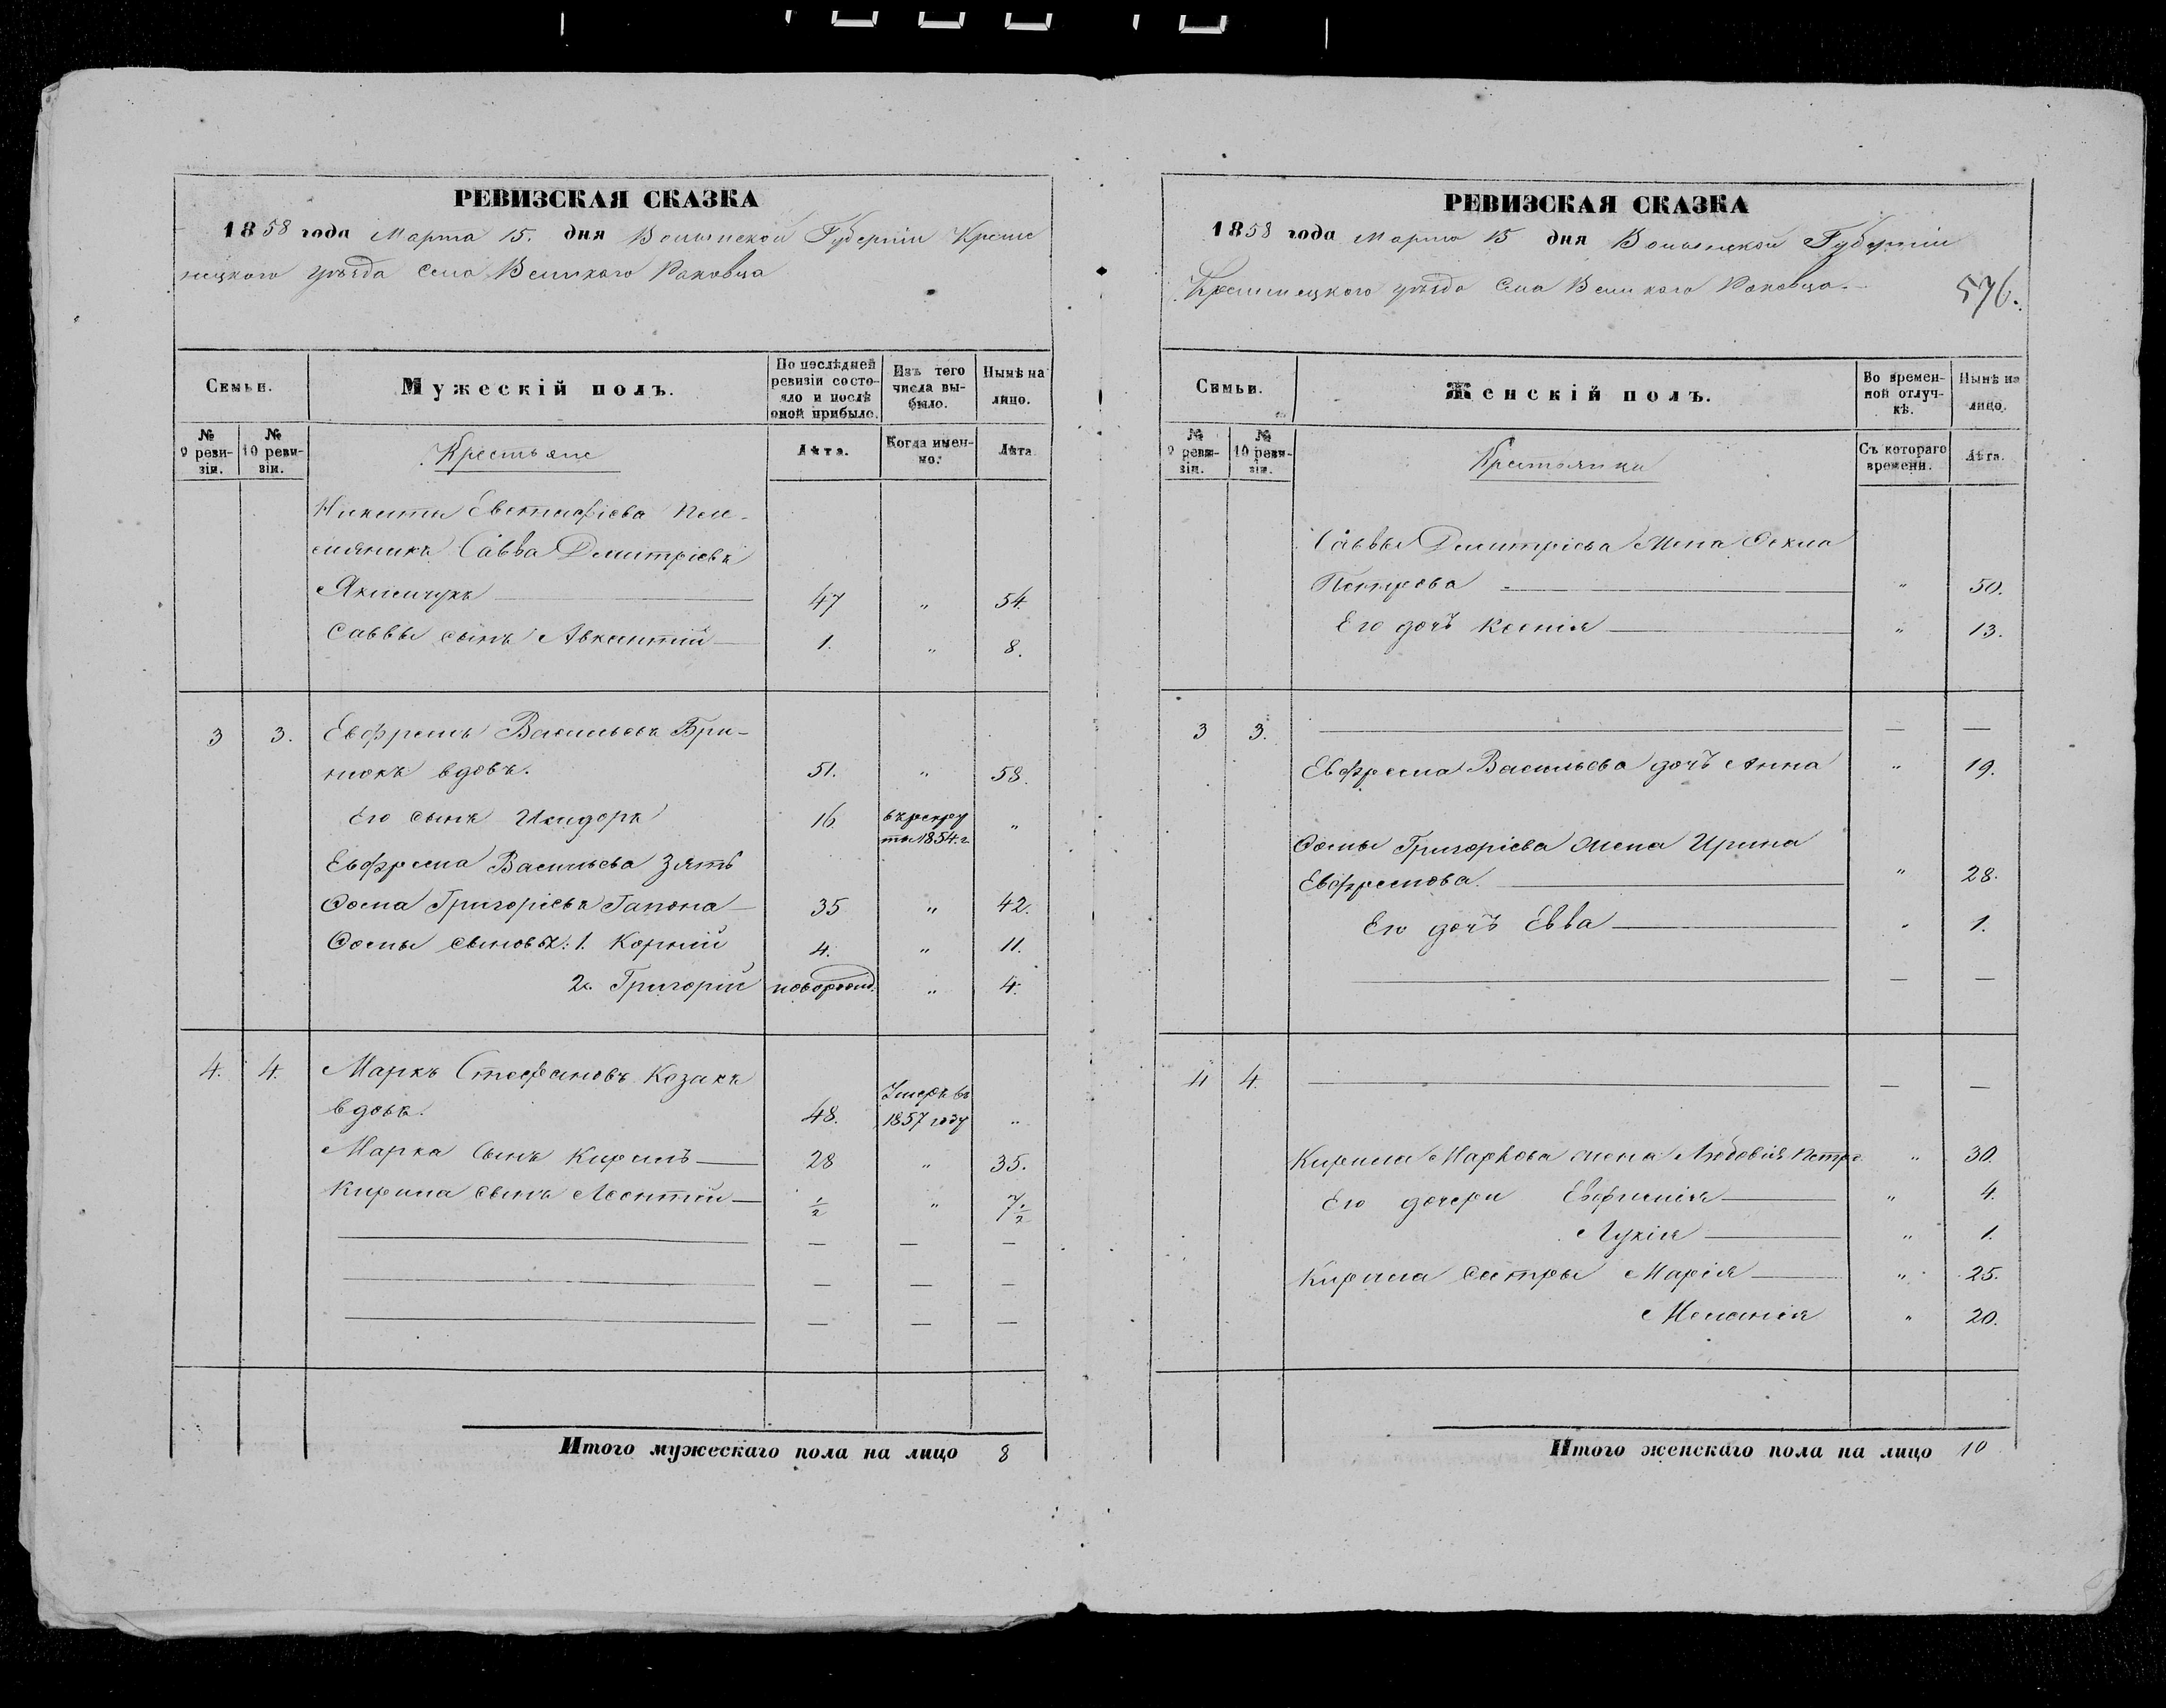 РЕВИЗСКАЯ СКАЗКА
1858 года Марта 15. дня Волынской Губерніи Креме
нецкого уѣзда села Великого Раковца
Семьи.
Мужескій полъ.
По послѣдней ревизіи состояло и послѣ оной прибыло.
Изъ того числа выбыло.
Нынѣ на лицо.
№ 9 ревизіи.
№ 10 ревизіи.
Крестьяне
Лѣта.
Когда именно.
Лѣта
Никиты Евстафіева плем-
мяникъ Савва Дмитріевъ
Якимчукъ 47 „ 54.
Саввы сынъ Авксентій 1. „ 8.
3 3. Евфремъ Васильевъ Бри-
нюкъ вдовъ. 51. „ 58.
Его сынъ Исидоръ 16. въ рекру
ты 1854. г. „
Евфрема Васильева зять
Ѳома Григорієвъ Гапона 35 „ 42.
Ѳомы сыновья: 1. Корній 4. „ 11.
2. Григорій новорожд. „ 4.
4. 4. Маркъ Стефановъ Козакъ
вдовъ. 48. Умеръ въ
1857 году „
Марка сынъ Кирилъ 28 „ 35.
Кирила сынъ Леонтій ½ „ 7½
Итого мужескаго пола на лицо 8
РЕВИЗСКАЯ СКАЗКА
1858 года Марта 15 дня Волынской Губерніи
Кременецкого уѣзда села Великого Раковца.
576.
Семьи.
Женскій полъ.
Во временной отлучкѣ.
Нынѣ на лицо.
№ 9 ревизіи.
№ 10 ревизіи.
Крестьянки
Съ котораго времени.
Лѣта.
Саввы Дмитріева жена Фекла
Петрова „ 50.
Его дочь Ксенія „ 13.
3 3.
Евфрема Васильева дочь Анна „ 19.
Ѳомы Григоріева жена Ирина
Евфремова. „ 28.
Его дочь Евва „ 1.
4 4.
Кирила Маркова жена Любовія Петро „ 30.
Его дочери Евфимія „ 4.
Лукія „ 1.
Кирила сестры Марія „ 25.
Меланія „ 20.
Итого женскаго пола на лицо 10